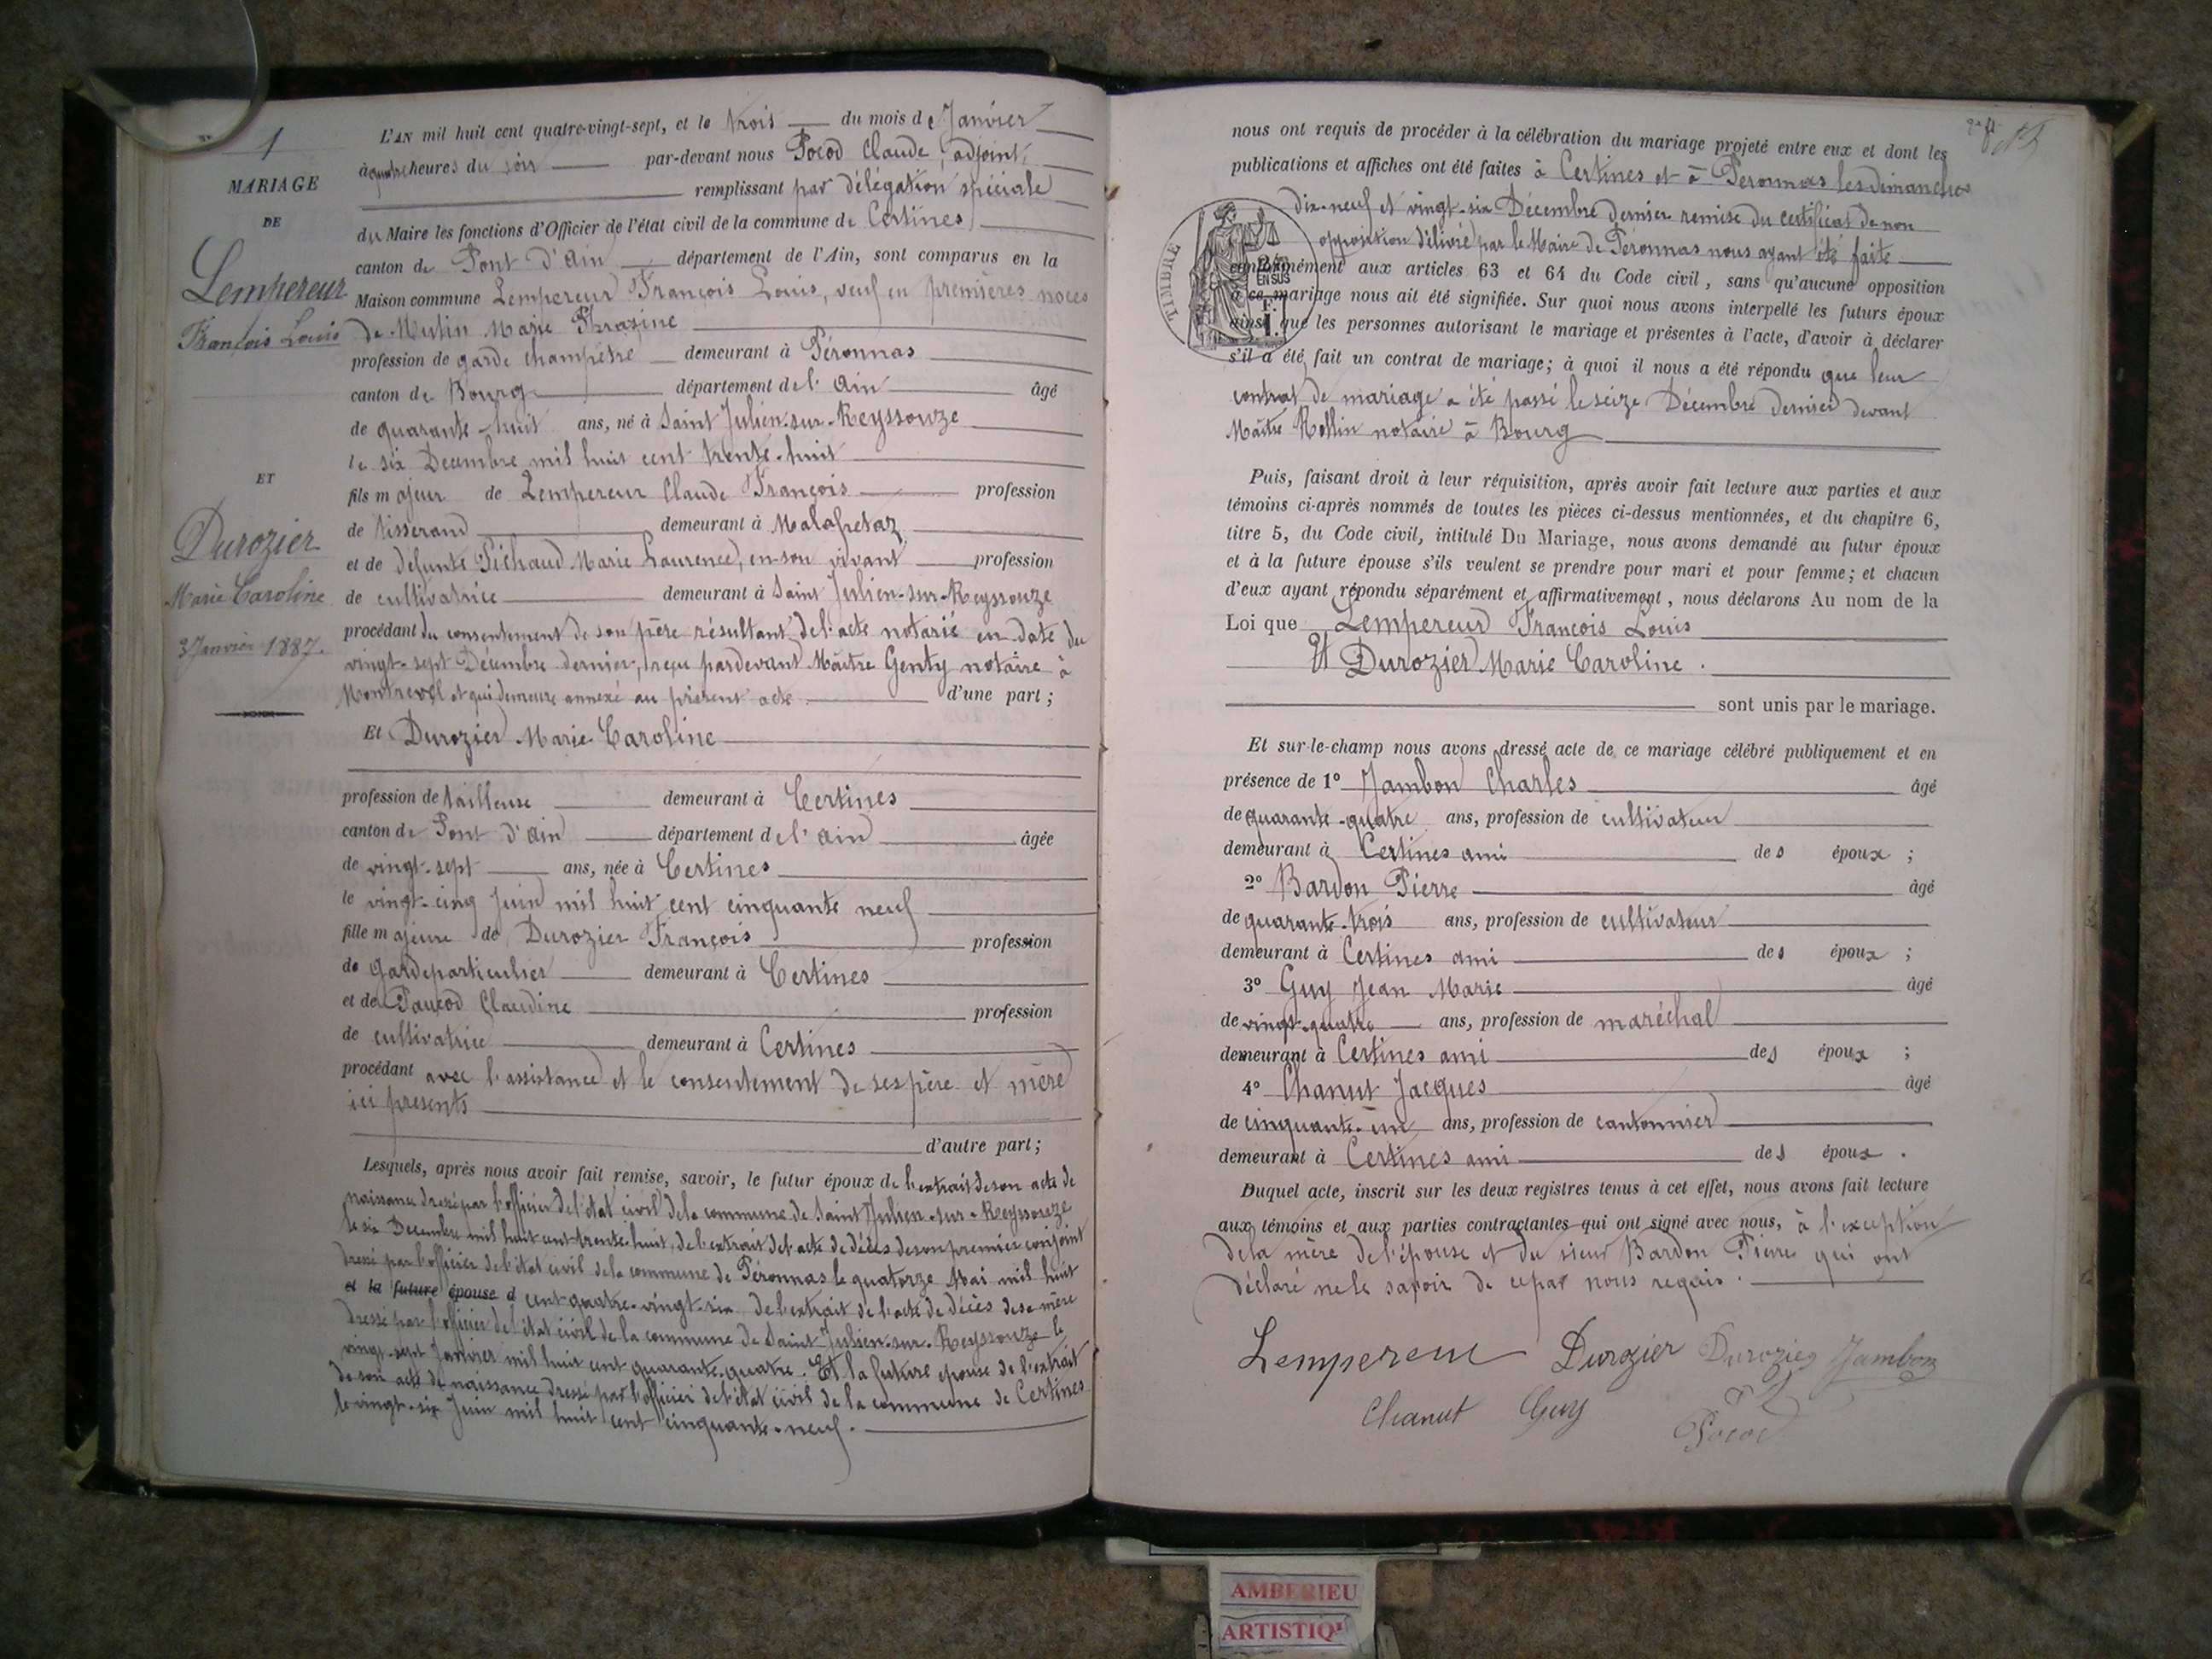 1
MARIAGE
DE
Lempereur
François Louis
ET
Durozier
Marie Caroline
3 Janvier 1887.
L'AN mil huit cent quatre-vingt-sept, et le trois du mois de Janvier
à quatre heures du soir par-devant nous Pocod Claude, adjoint,
remplissant par délégation spéciale
du Maire les fonctions d'Officier de l'état civil de la commune de Certines
canton de Pont d'Ain département de l'Ain, sont comparus en la
Maison commune Lempereur François Louis, veuf en premières noces
de Mutin Marie
profession de garde champêtre demeurant à Péronnas
canton de Bourg département de l'Ain âgé
de quarante-huit ans, né à Saint Julien-sur-Reyssouze
le six Decembre mil huit cent trente-huit
fils majeur de Lempereur Claude François profession
de tisserand demeurant à Malafretaz
et de defunte Péchaud Marie Laurence, en son vivant profession
de cultivatrice demeurant à Saint Julien-sur-Reyssouze
procédant du consentement de son père résultant de l'acte notarié en date du
vingt-sept Décembre dernier, reçu pardevant Maître Genty notaire à
Montrevel et qui demeure annexé au présent acte d'une part ;
Et Durozier Marie Caroline
profession de tailleuse demeurant à Certines
canton de Pont d'Ain département de l'Ain âgée
de vingt-sept ans, née à Certines
le vingt-cinq Juin mil huit cent cinquante neuf
fille majeure de Durozier François profession
de garde particulier demeurant à Certines
et de Paucod Claudine profession
de cultivatrice demeurant à Certines
procédant avec l'assistance et le consentement de ses père et mère
ici présents
d'autre part ;
Lesquels, après nous avoir fait remise, savoir, le futur époux de l'extrait de son acte de
naissance dressé par l'officier de l'état civil de la commune de Saint Julien-sur-Reyssouze
le six Decembre mil huit cent trente-huit, de l'extrait de l'acte de décès de son premier conjoint
dressé par l'officier de l'état civil de la commune de Péronnas le quatorze Mai mil huit
et la future épouse d cent quatre-vingt-six, de l'extrait de l'acte de décès de sa mère
dressé par l'officier de l'état civil de la commune de Saint Julien-sur-Reyssouze le
vingt-sept Janvier mil huit cent quarante-quatre. Et la future épouse de l'extrait
de son acte de naissance dressé par l'officier de l'état civil de la commune de Certines
le vingt-six Juin mil huit cent cinquante-neuf.
nous ont requis de procéder à la célébration du mariage projeté entre eux et dont les
publications et affiches ont été faites à Certines et à Péronnas les dimanches
dix-neuf et vingt-six Décembre dernier remise du certificat de non
opposition délivré par le Maire de Péronnas nous ayant été faite
TIMBRE
EN SUS
conformément aux articles 63 et 64 du Code civil, sans qu'aucune opposition
à ce mariage nous ait été signifiée. Sur quoi nous avons interpellé les futurs époux
ainsi que les personnes autorisant le mariage et présentes à l'acte, d'avoir à déclarer
s'il a été fait un contrat de mariage; à quoi il nous a été répondu que leur
contrat de mariage a été passé le seize Décembre dernier devant
Maître Rollin notaire à Bourg
Puis, faisant droit à leur réquisition, après avoir fait lecture aux parties et aux
témoins ci-après nommés de toutes les pièces ci-dessus mentionnées, et du chapitre 6,
titre 5, du Code civil, intitulé Du Mariage, nous avons demandé au futur époux
et à la future épouse s'ils veulent se prendre pour mari et pour femme; et chacun
d'eux ayant répondu séparément et affirmativement, nous déclarons Au nom de la
Loi que Lempereur François Louis
Et Durozier Marie Caroline.
sont unis par le mariage.
Et sur-le-champ nous avons dressé acte de ce mariage célébré publiquement et en
présence de 1° Jambon Charles âgé
de quarante-quatre ans, profession de cultivateur
demeurant à Certines ami des époux ;
2° Bardon Pierre âgé
de quarante-trois ans, profession de cultivateur
demeurant à Certines ami des époux ;
3° Guy Jean Marie âgé
de vingt-quatre ans, profession de maréchal
demeurant à Certines ami des époux ;
4° Chanut Jacques âgé
de cinquante-un ans, profession de cantonnier
demeurant à Certines ami des époux .
Duquel acte, inscrit sur les deux registres tenus à cet effet, nous avons fait lecture
aux témoins et aux parties contractantes qui ont signé avec nous, à l'exception
de la mère de l'épouse et du sieur Bardon Pierre qui ont
déclaré ne le savoir de ce par nous requis.
Lempereur Durozier Durozier Jambon
Chanut Guy Pocod
AMBERIEU
ARTISTIQ